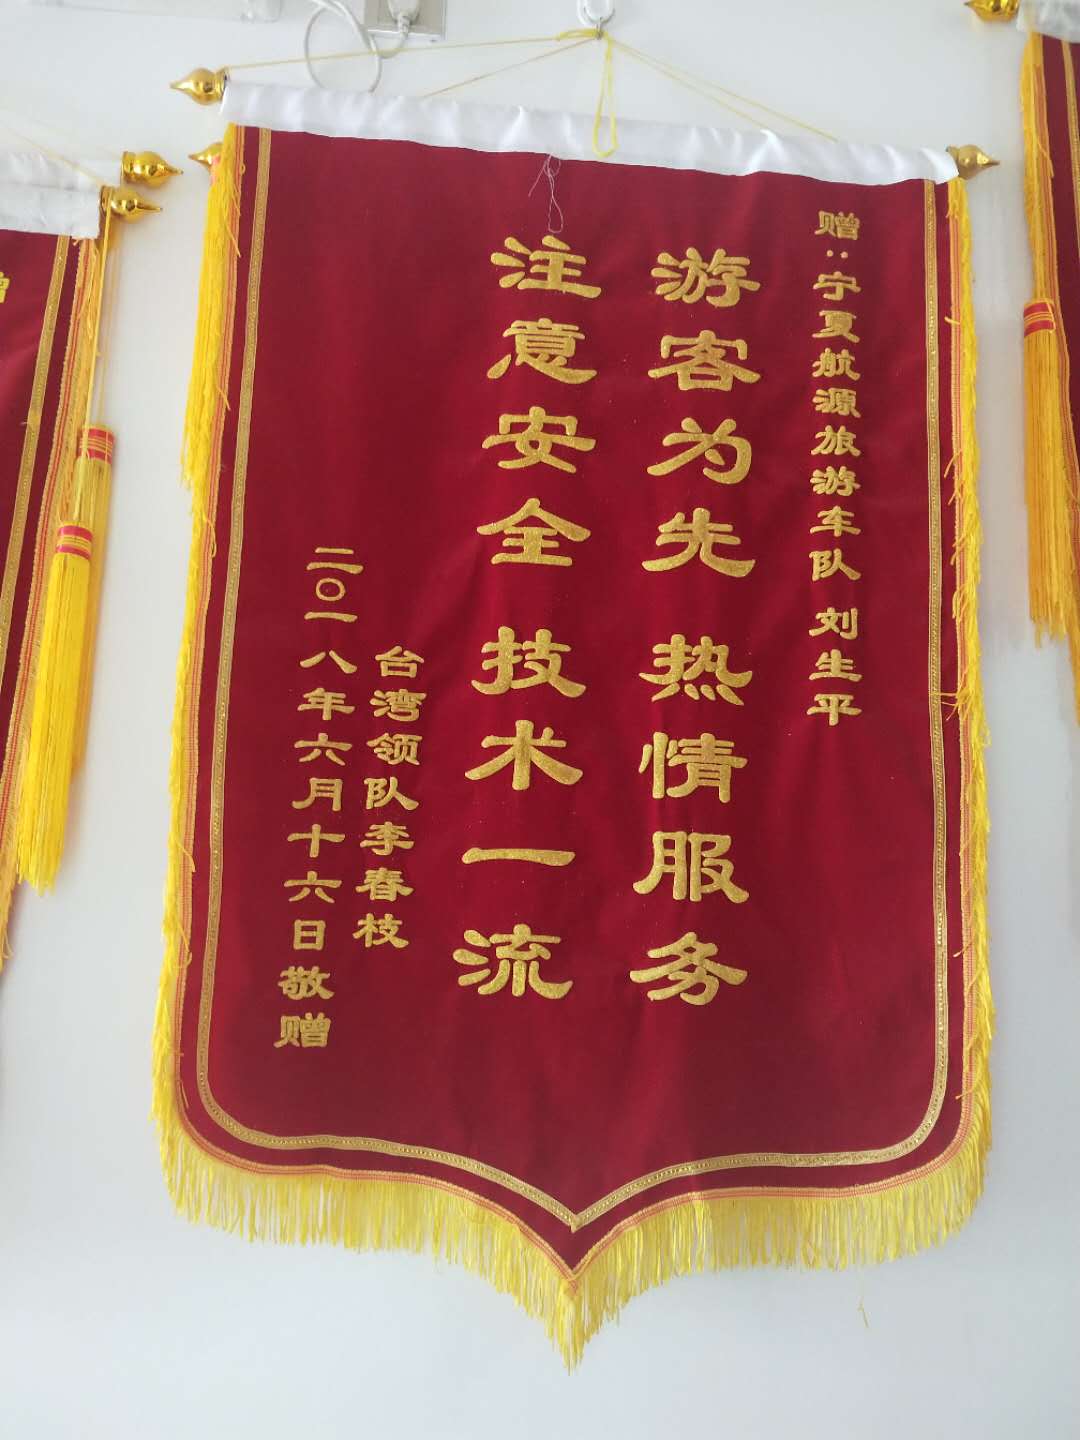 赠:宁夏航源旅游车队 刘生平
游客为先 热情服务
注意安全 技术一流
台湾领队李春枝
二〇一八年六月十六日敬赠